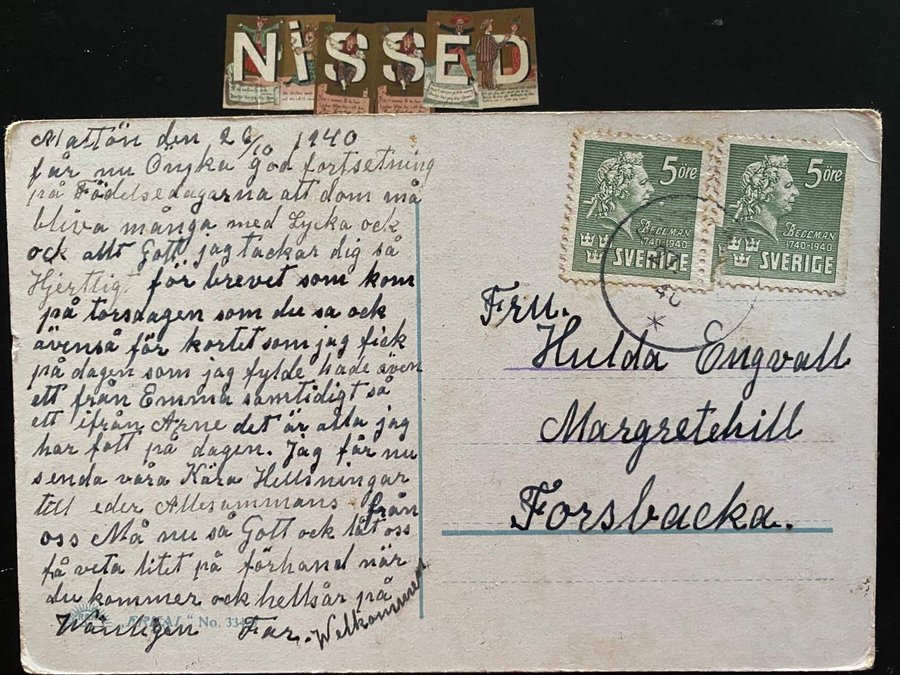 NiSSED
Mattön den 26/10 1940
får nu Önska God fortsetning
på Födelsedagarna att dom må
bliva många med Lycka ock
ock allt Gott, jag tackar dig så
Hjertligt för brevet som kom
på torsdagen som du sa ock
ävenså för kortet som jag fick
på dagen som jag fylde hade även
ett från Emma samtidigt så
ett ifrån Arne det är alla jag
har fott på dagen. Jag får nu
senda våra Kära Hellsningar
till eder Allesammans från
oss Må nu så Gott ock låt oss
få veta litet på förhand när
du kommer ock hellsår på
Wänligen Far. Welkommen
No. 334
5 öre
BELLMAN
1740-1940
SVERIGE
5 öre
BELLMAN
1740-1940
SVERIGE
Fru.
Hulda Engvall
Margretehill
Forsbacka.